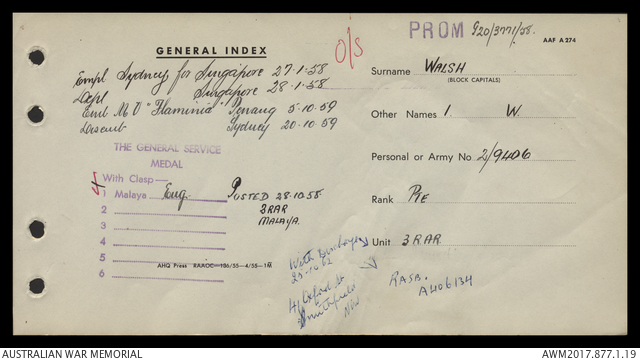 PROM 920/3771/58.
AAF A 274
O/S
GENERAL INDEX
Empl Sydney for Singapore 27-1-58
Depl Singapore 28-1-58
Emb M V "Flaminia" Penang 5-10-59
Disemb Sydney 20-10-59
Surname WALSH
(BLOCK CAPITALS)
Other Names I. W.
Personal or Army No. 2/9406
Rank PTE
Unit 3 RAR
THE GENERAL SERVICE
MEDAL
With Clasp—
1 Malaya Eng.
2
3
4
5
6
POSTED 28.10.58
3RAR
MALAYA.
AHQ Press RAAOC—186/55—4/55—1M
With
20-10-62
41 Oxford St
Smithfield
NSW
RASB.
A406134
AUSTRALIAN WAR MEMORIAL
AWM2017.877.1.19